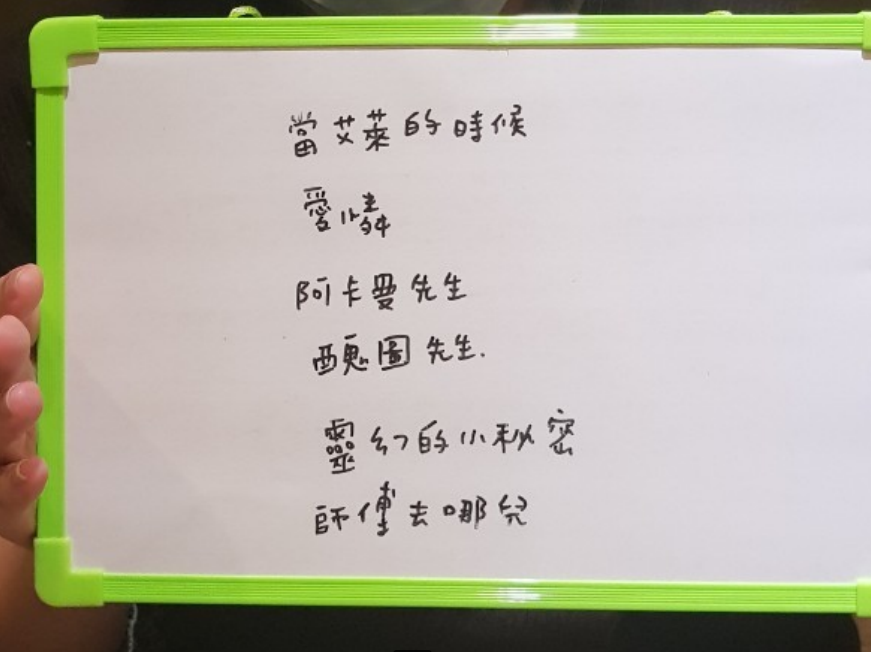 當艾萊的時候
愛憐
阿卡曼先生
醜圖先生.
靈幻的小秘密
師傅去哪兒